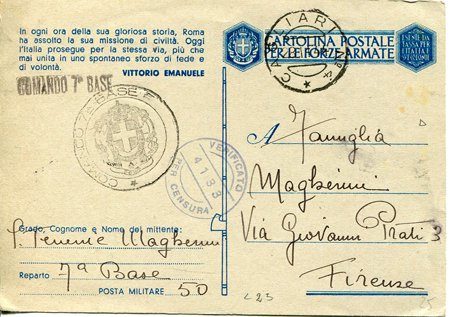 In ogni ora della sua gloriosa storia, Roma
ha assolto la sua missione di civiltà. Oggi
l'Italia prosegue per la stessa via, più che
mai unita in uno spontaneo sforzo di fede e
di volontà.
VITTORIO EMANUELE
COMANDO 7ª BASE
COMANDO 7ª BASE
CAGLIARI
CARTOLINA POSTALE
PER LE FORZE ARMATE
ESENTE DA
TASSA PER
VERIFICATO
4183
PER CENSURA
A Famiglia
Magherini
Via Giovanni Prati 3
Firenze
Grado, Cognome e Nome del mittente:
S. Tenente Magherini
Reparto 7ª Base
POSTA MILITARE 50